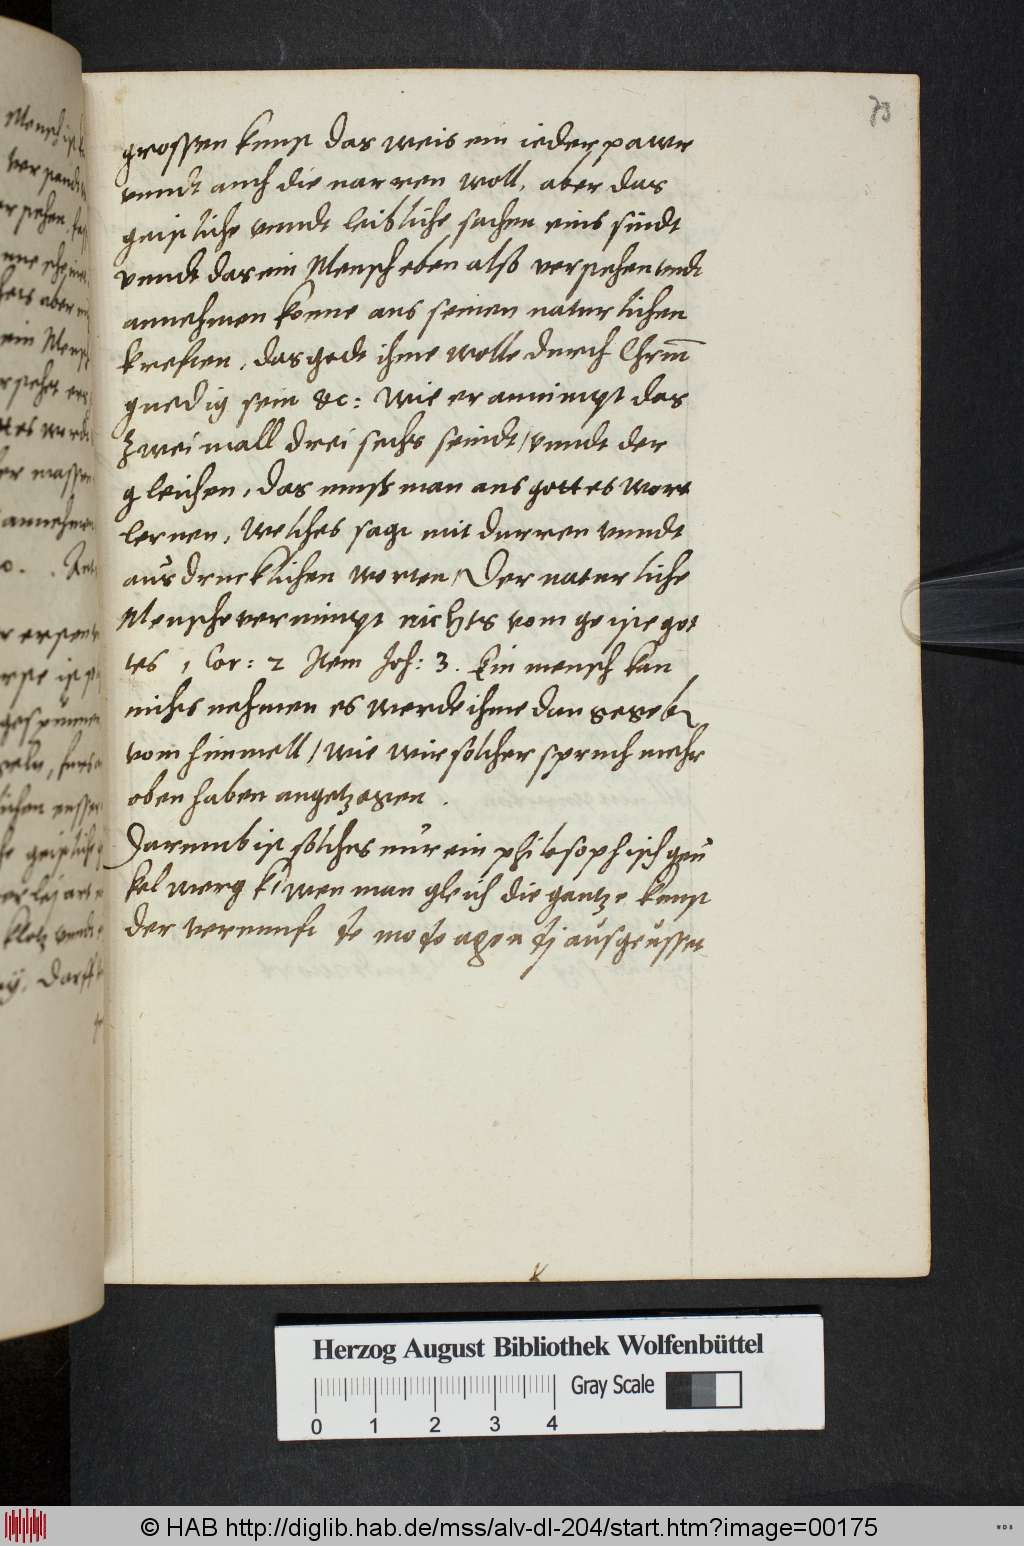 73
grossen kunst das weis ein ieder pawr
vnndt auch die narren woll, aber das
geistliche vnndt leibliche sachen eins sindt
vnndt das ein Mensch eben also verstehen undt
annehmen konne aus seinen naturlichen
kreften, das godt ihme wolle durch Chrm̄
gnedig sein &c: wie er annimpt das
zwei mall drei sechs seindt / vnndt der
gleichen, das muss man aus gottes wort
lernen, welches sagt mit durren vnndt
ausdrucklichen worten / Der naturliche
Mensche vernimpt nichts vom geiste got
tes 1 Cor: 2 Item Joh: 3. Ein mensch kan
nichts nehmen es werde ihme dan gegeben
vom himmell / wie wir solcher spruch mehr
oben haben angetzogen.
Darumb ist solches nur ein philosophisch geu
kel werg wen man gleich die gantze kunst
der vernunft de modo agendi ausgeusset
Herzog August Bibliothek Wolfenbüttel
Gray Scale
0 1 2 3 4
© HAB http://diglib.hab.de/mss/alv-dl-204/start.htm?image=00175